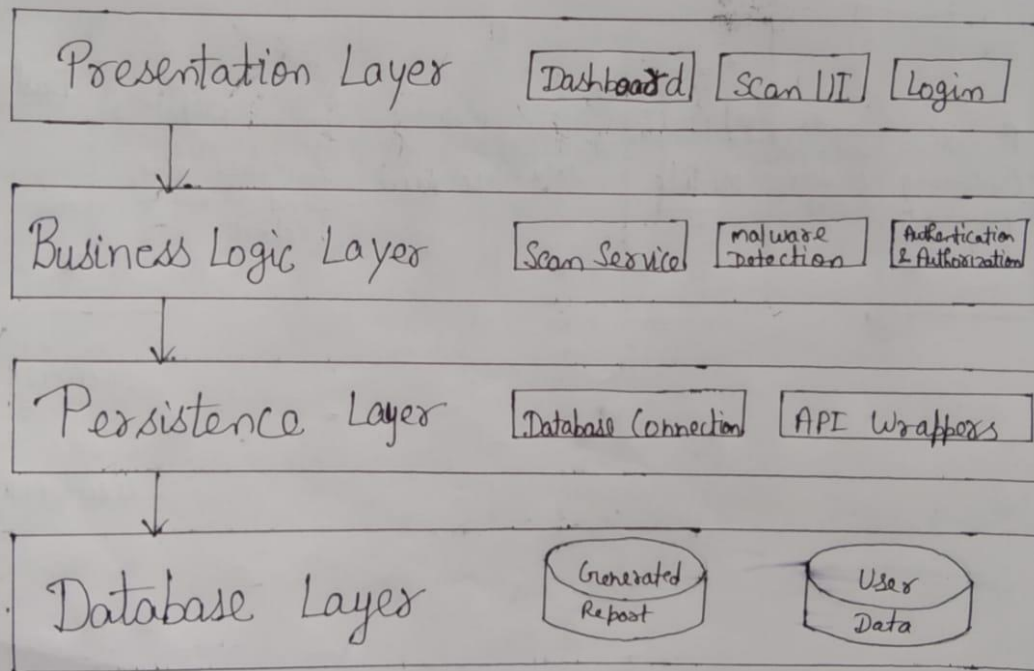 Presentation Layer Dashboard Scan UI Login
Business Logic Layer Scan Service Malware Detection Authentication & Authorization
Persistence Layer Database Connection API Wrappers
Database Layer Generated Report User Data